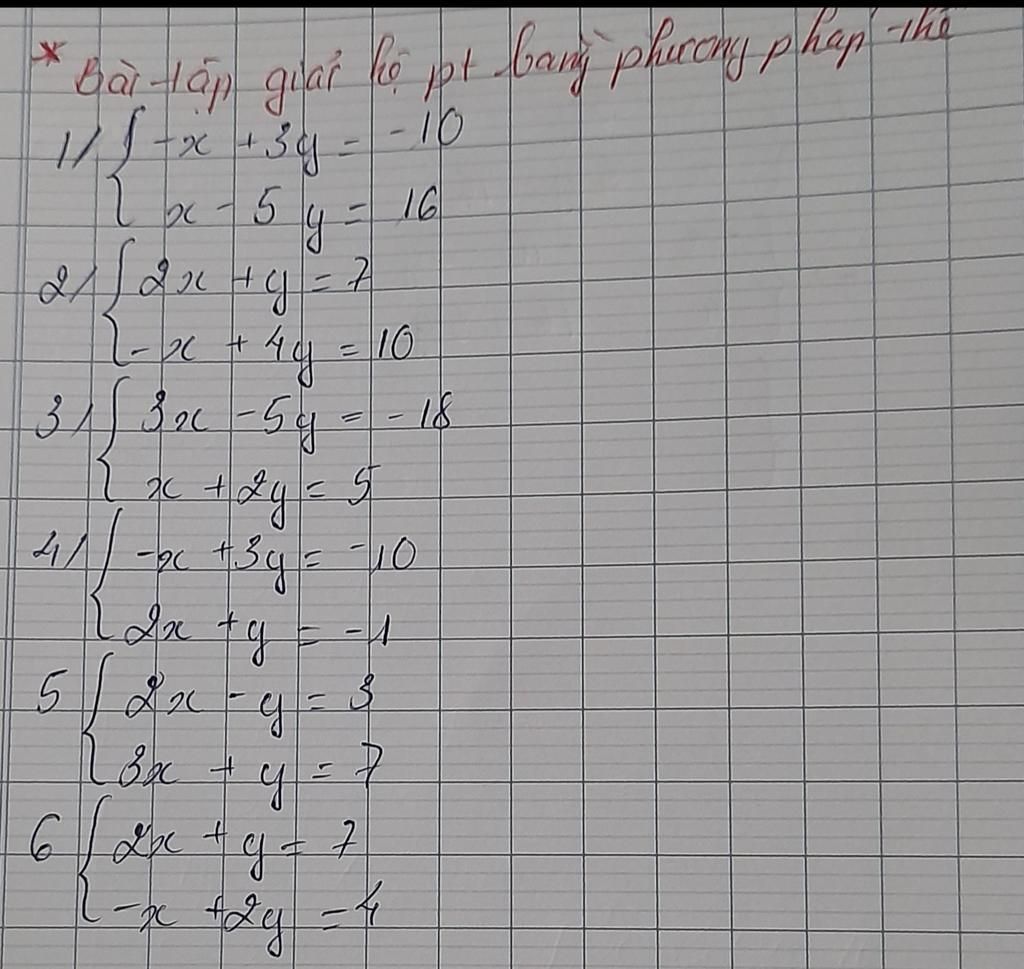 * Bài tập giải hệ pt bằng phương pháp thế
1/ { -x + 3y = -10
x - 5y = 16
2/ { 2x + y = 7
-x + 4y = 10
3/ { 3x - 5y = -18
x + 2y = 5
4/ { -x + 3y = -10
2x + y = -1
5 { 2x - y = 3
3x + y = 7
6 { 2x + y = 7
-x + 2y = 4